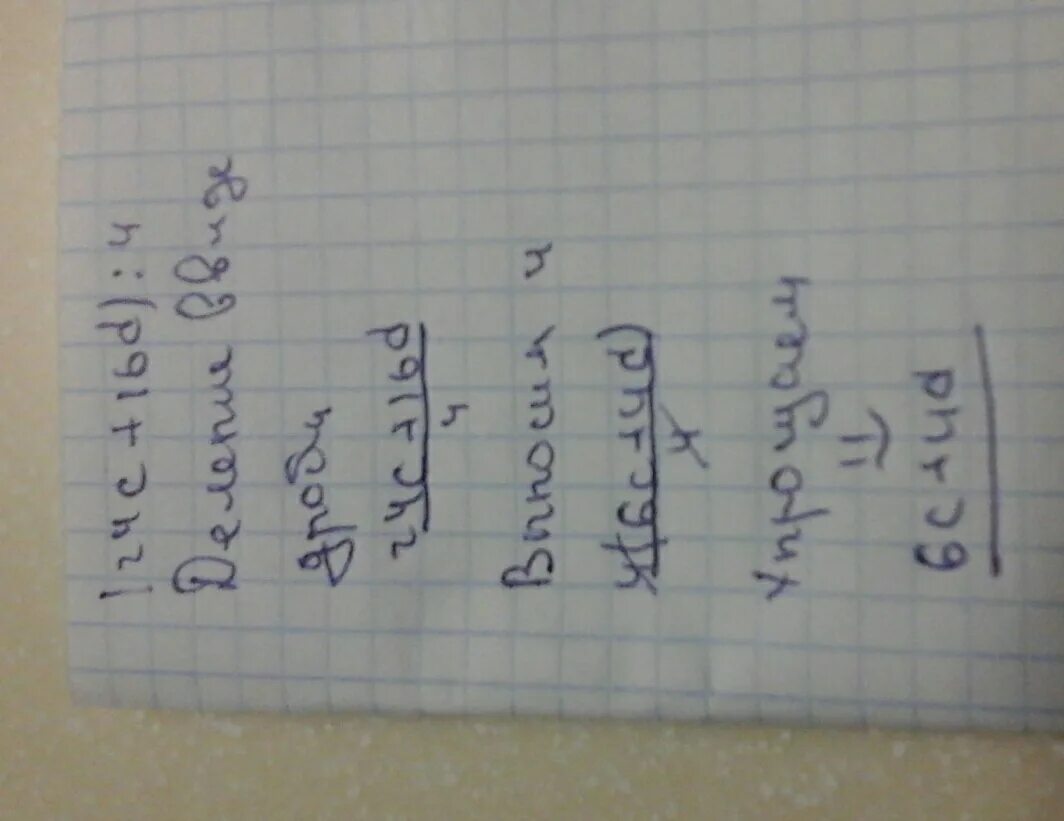 (24c+16d):4
Деление ввиде
дроби
24c+16d
4
Выносим 4
4(6c+4d)
4
Упрощаем
=
6c+4d